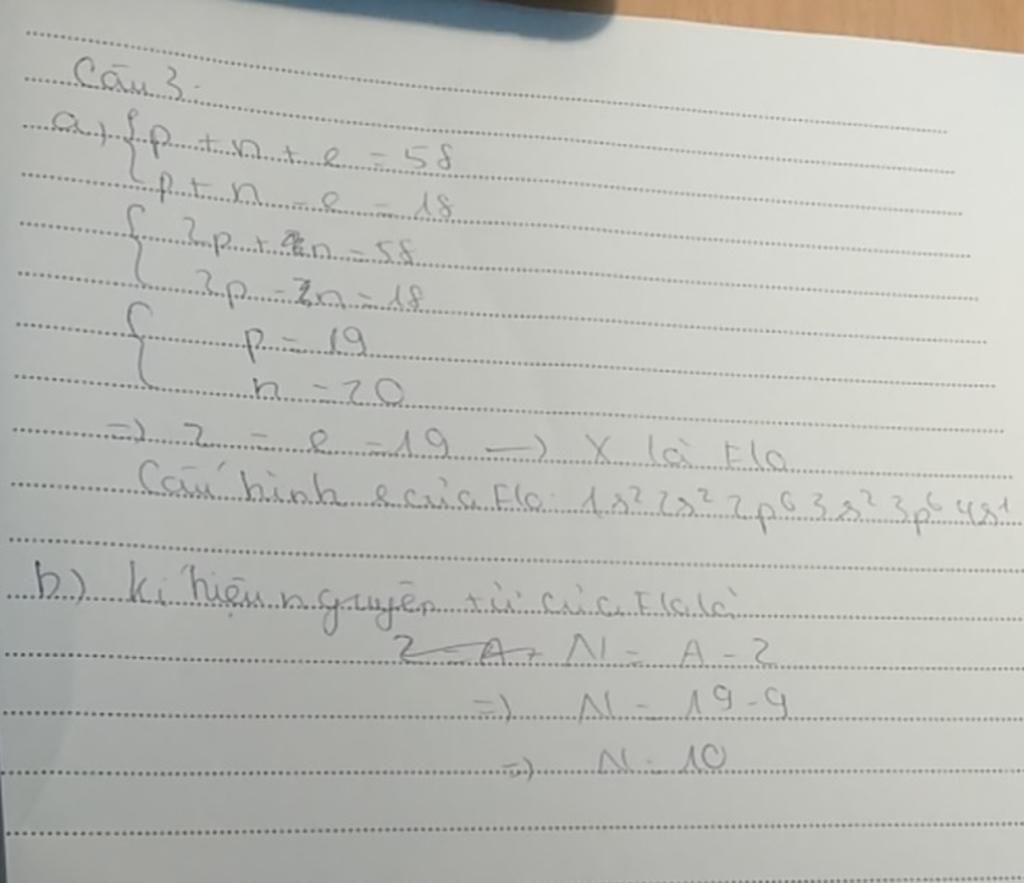 Câu 3.
a, { p + n + e = 58
p + n - e = 18
{ 2p + n = 58
2p - n = 18
{ p = 19
n = 20
=> Z = e = 19 → X là Flo
Cấu hình e của Flo: 1s² 2s² 2p⁶ 3s² 3p⁶ 4s¹
b) kí hiệu nguyên tử của Flo là
N = A - Z
=> N = 19 - 9
=> N = 10